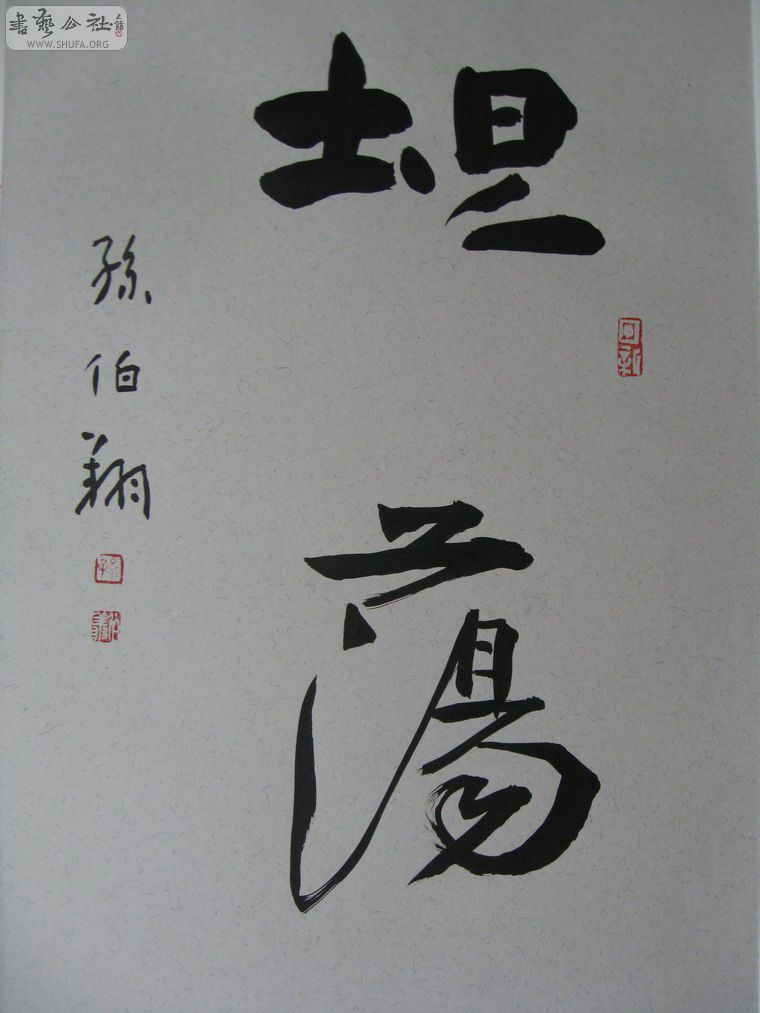 書藝公社
WWW.SHUFA.ORG
坦蕩
孫伯翔